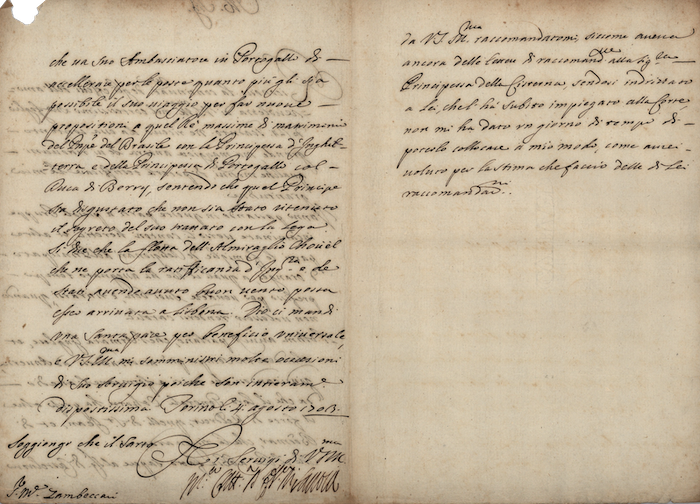 che va Suo Ambasciatore in Portogallo di
accellerar per le poste quanto più gli sia
possibile il suo viaggio per far nuove
propositioni a quel Rè massime di matrimonij
del Pnpe del Brasile con la Principessa d'Inghil-
terra e della Principessa di Portogallo col
Duca di Berry, sentendo che quel Principe
sia disgustato che non sia stato
il segreto del suo trattato con la Lega
Si dice che la flotta dell'Almiraglio
che ne porta la ratificanza d' e de
Stati, avendo avuto buon vento, possa
esser arrivata a Lisbona. Dio ci mandi
una Santa pace per beneficio universale,
e V.S. Ill.ma mi somministri molte occasioni
di Suo servigio poiche son intieram.e
dispostissima. Torino li 4. agosto 1703.
Soggiongo che il Sarto
Servigi di V.S. Ill.ma
Zambeccari
da V.S. Ill.ma raccomandatomi, siccome aveva
ancora delle lettere di raccomand.ne alla Sig.ra
Principessa della Cisterna, sendosi indrizzato
a Lei, che l'hà subito impiegato alla Corte
non mi ha dato un giorno di tempo di
poterlo collocare a mio modo, come avrei
voluto per la stima che faccio delle di Lei
raccomandat.ni.